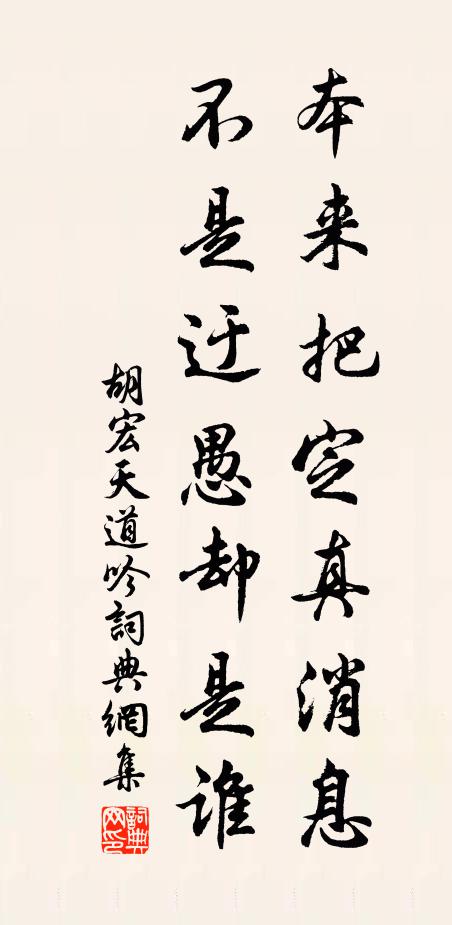 本来把定真消息
不是迂愚却是谁
胡宏天道吟詞典網集
詞典网印